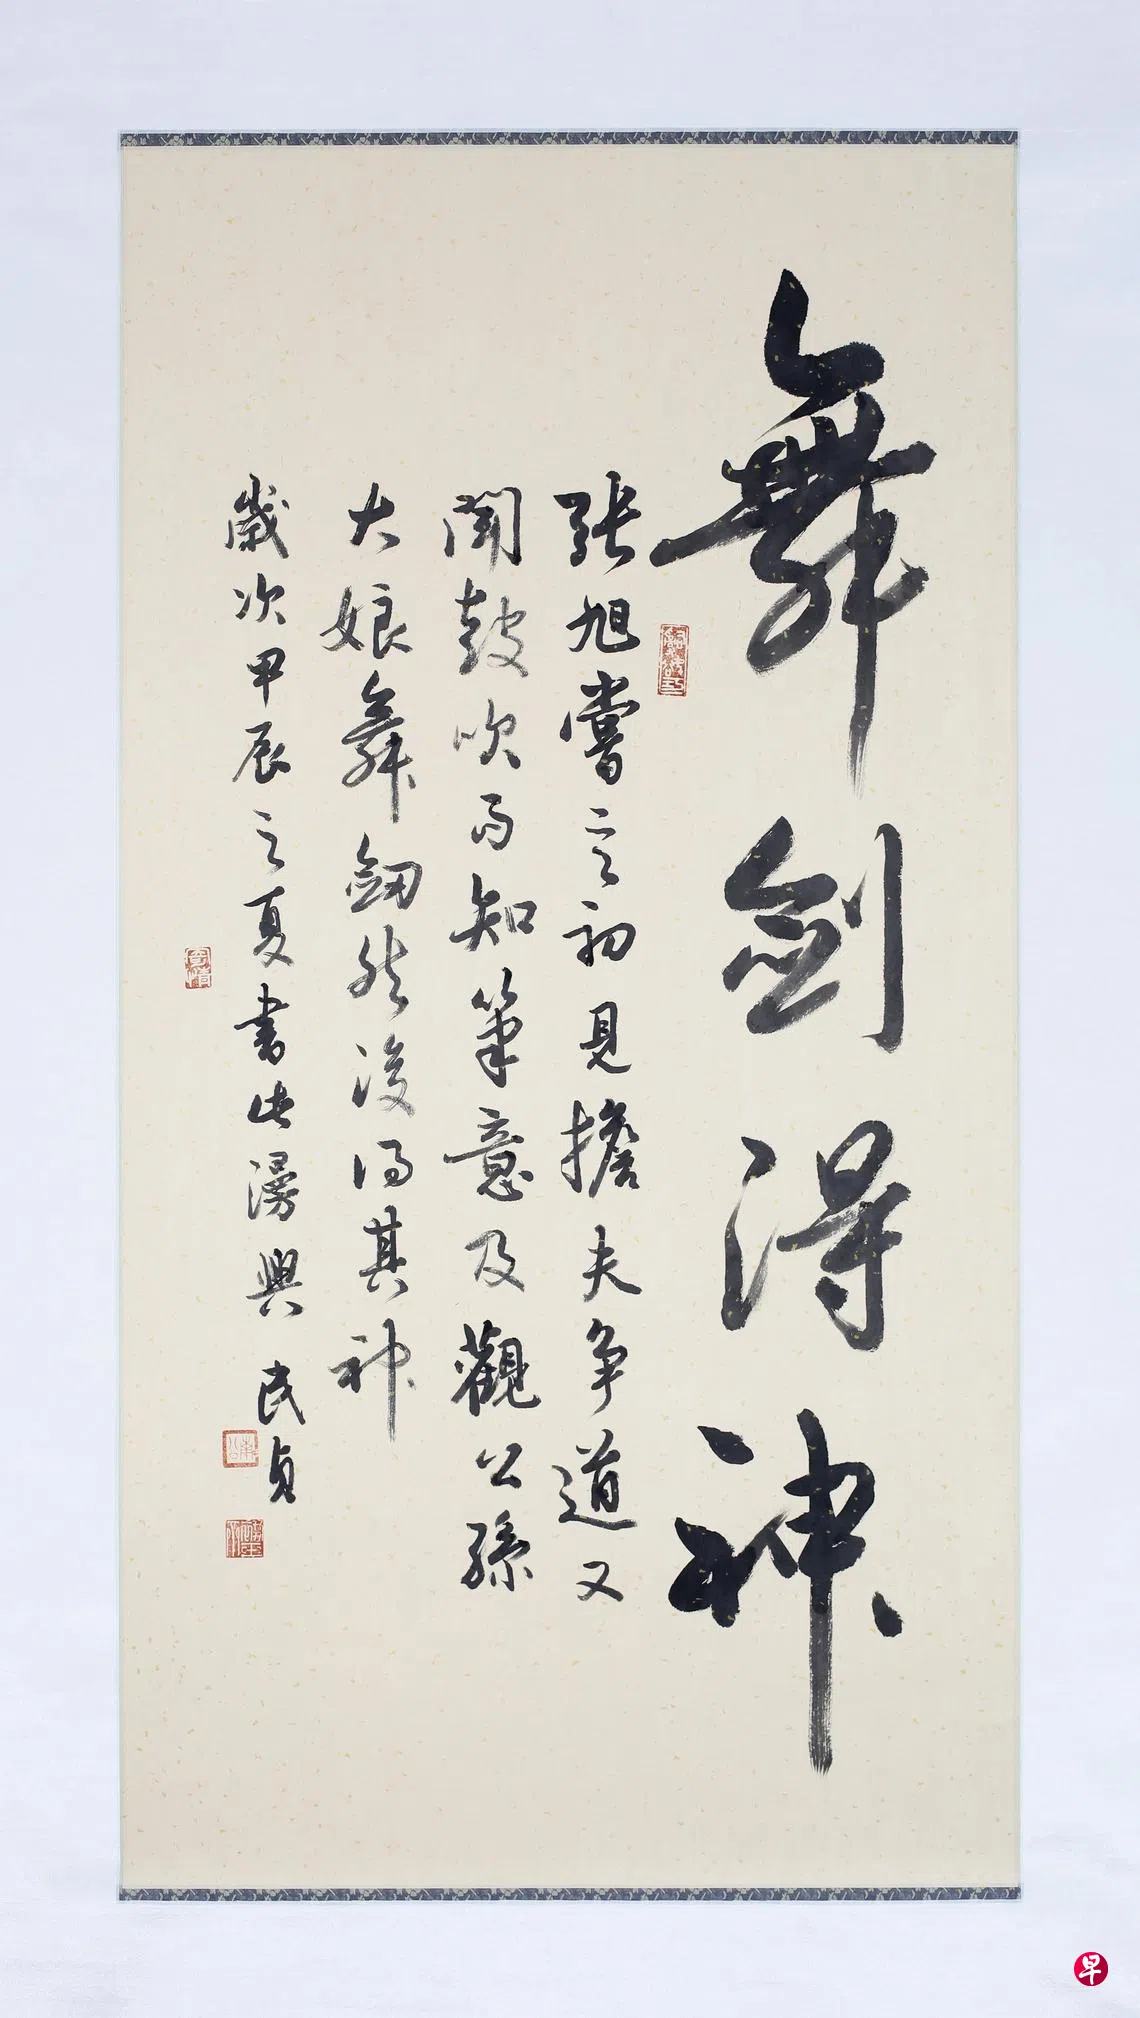 舞劍得神
張旭嘗言初見擔夫争道又
聞鼓吹而知筆意及觀公孫
大娘舞劒然後得其神
歲次甲辰之夏書此漫興 民貞
早